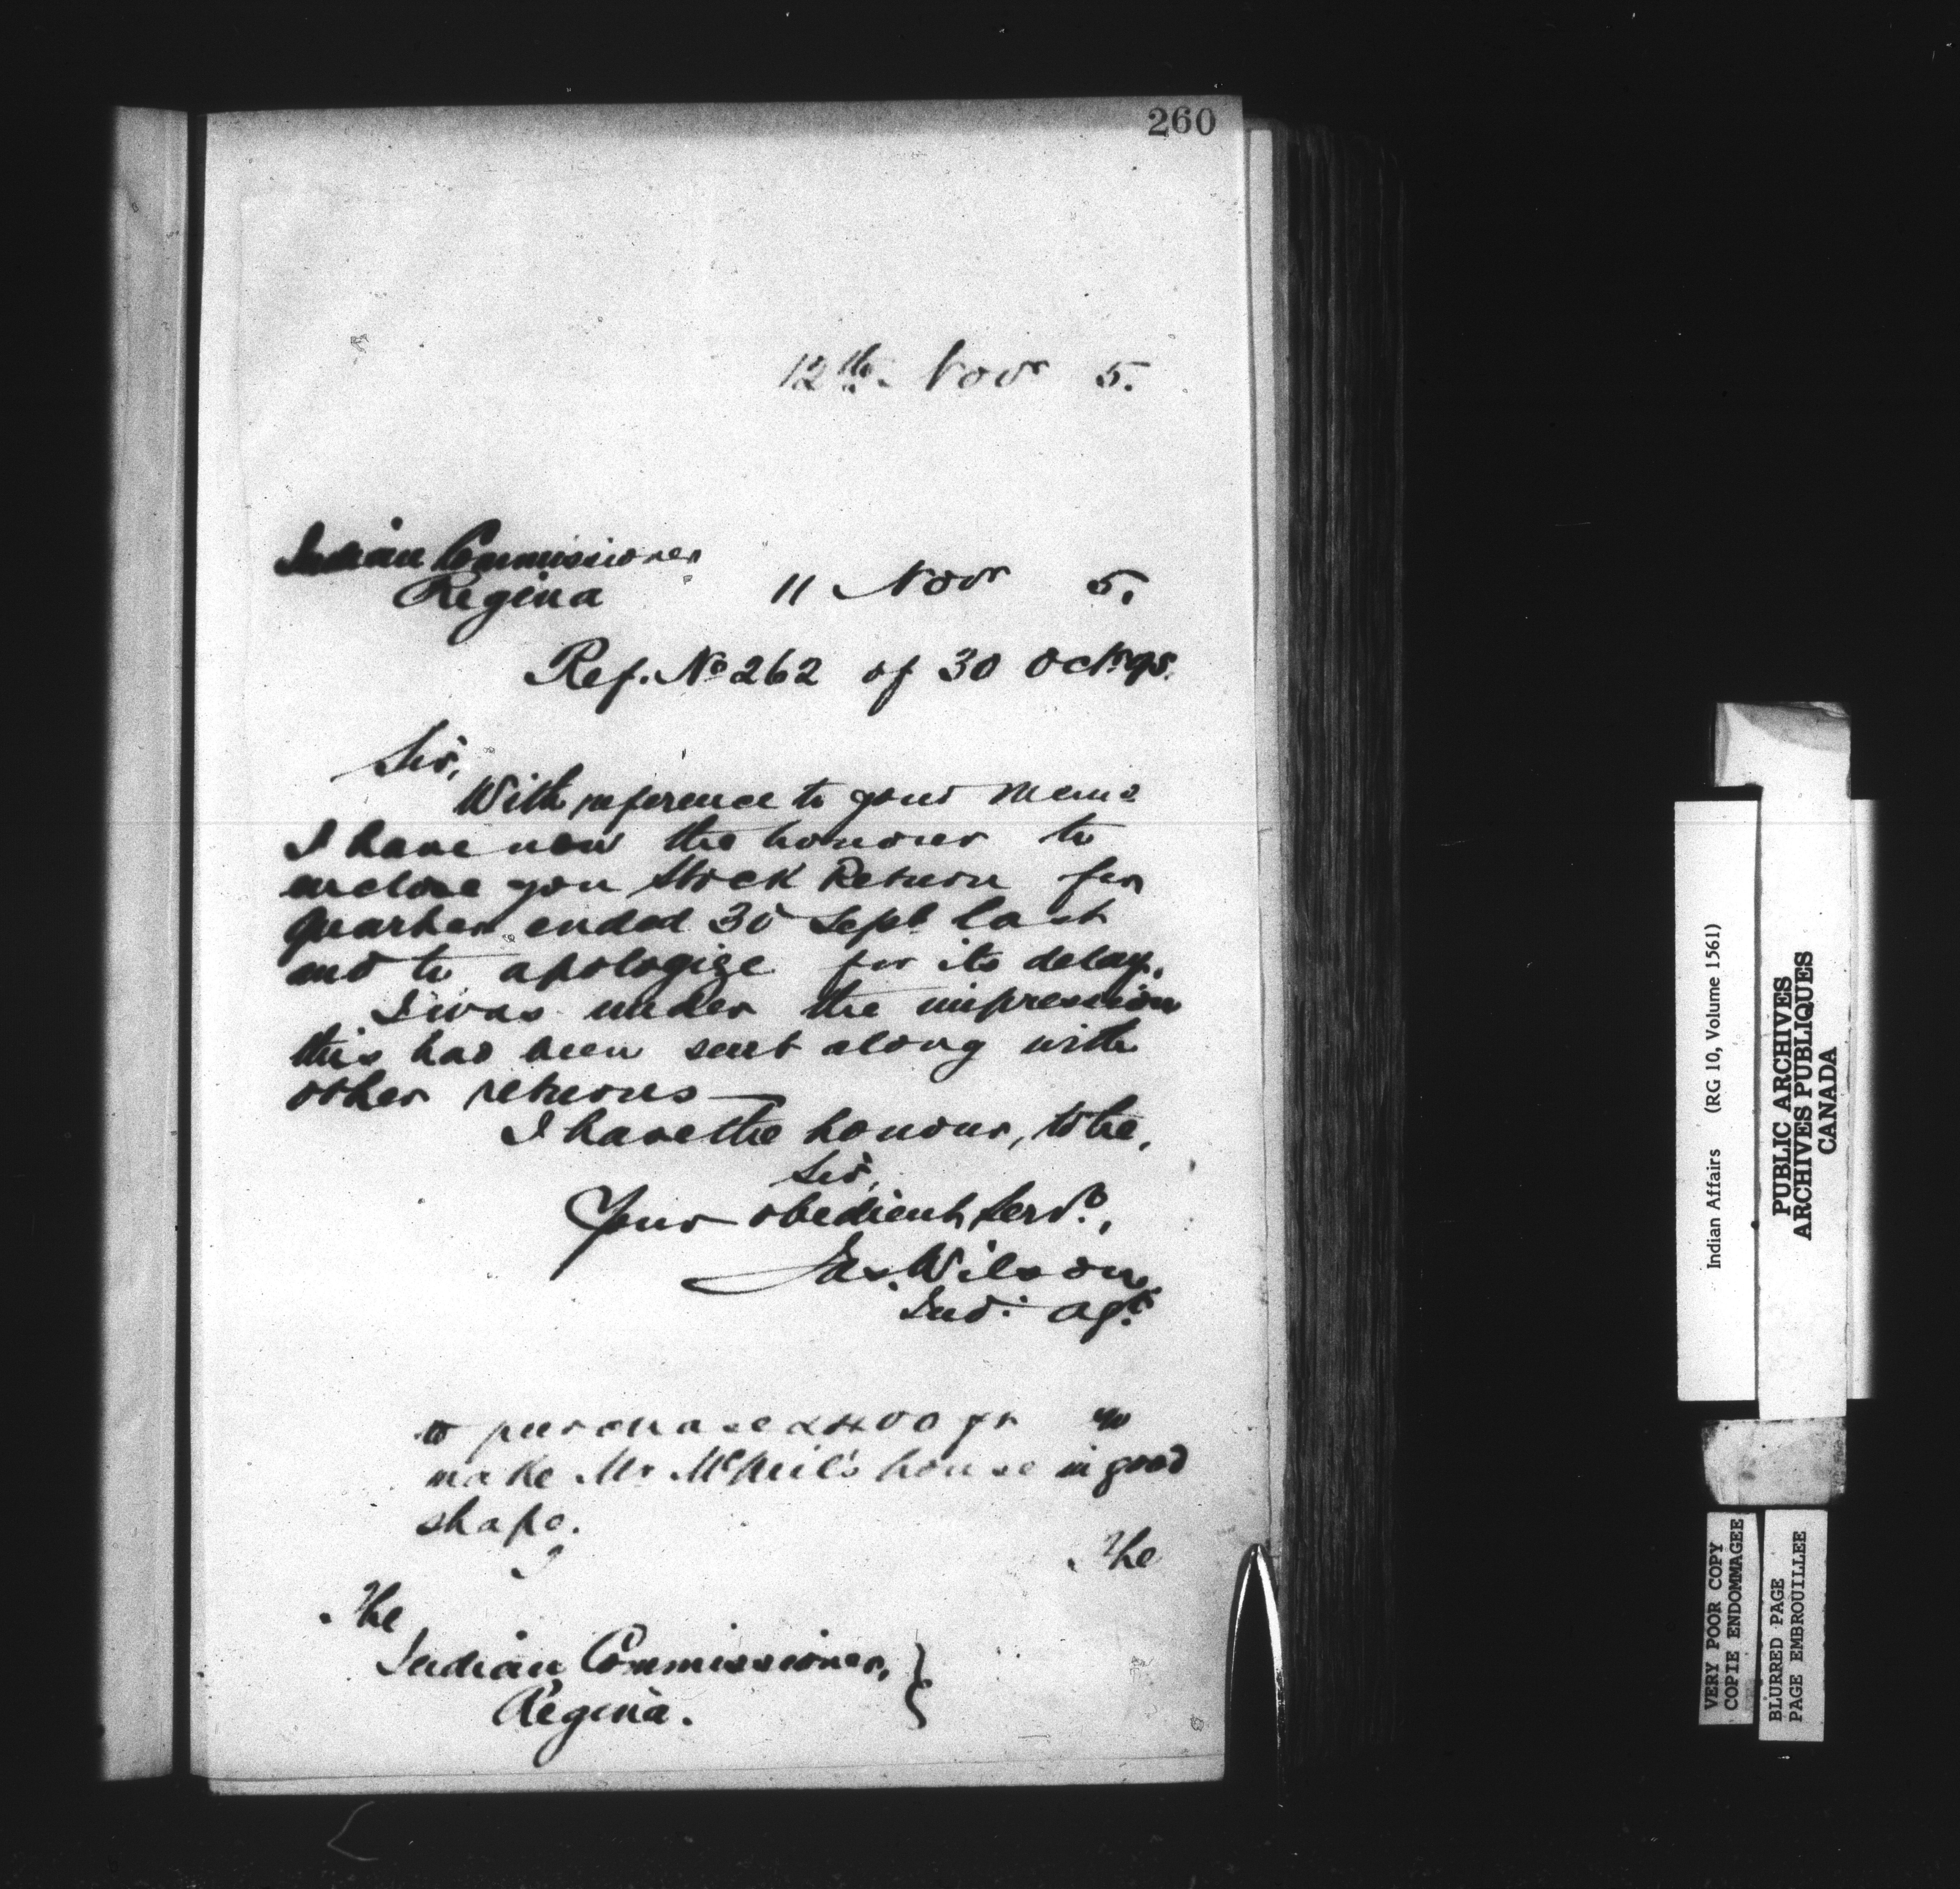 260
12th. Novr 5.
Indian Commissioner
Regina 11 Novr 5.
Ref. No 262 of 30 Octr 95.
Sir,
With reference to your Memo
I have now the honour to
enclose you Stock Return for
quarter ended 30 Sept last
and to apologize for its delay.
I was under the impression
this had been sent along with
other returns —
I have the honour, to be,
Sir,
Your obedient Servt.,
Jas. Wilson,
Ind. Agt.
to purchase 2400 ft to
make Mr McNeil's house in good
shape.
The
The
Indian Commissioner, }
Regina.
Indian Affairs (RG 10, Volume 1561)
PUBLIC ARCHIVES
ARCHIVES PUBLIQUES
CANADA
VERY POOR COPY
COPIE ENDOMMAGEE
BLURRED PAGE
PAGE EMBROUILLEE